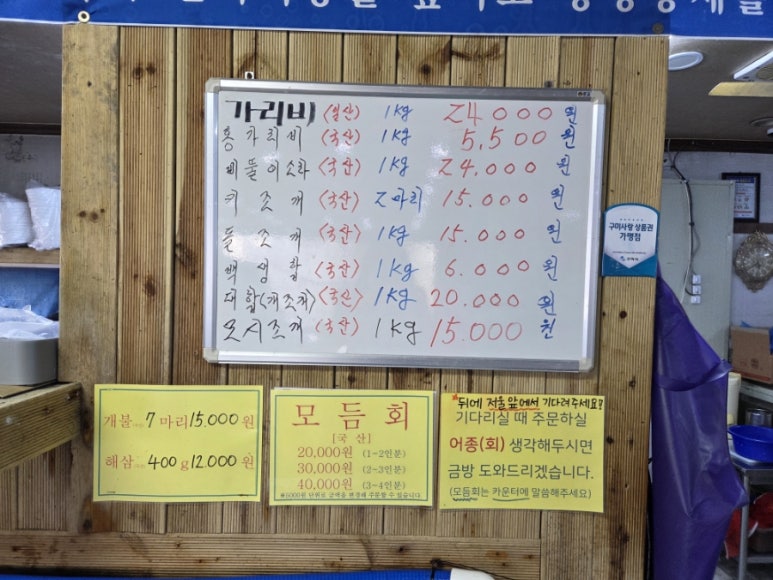 가리비 <일산> 1kg 24000원
홍가리비 <국산> 1kg 5,500원
삐뚤이소라 <국산> 1kg 24.000원
키조개 <국산> 2마리 15.000원
돌조개 <국산> 1kg 15.000원
백생합 <국산> 1kg 6.000원
대합(개조개) <국산> 1kg 20.000원
모시조개 <국산> 1kg 15.000원
구미사랑 상품권
가맹점
개불 7마리 15.000원
해삼 400g 12.000원
모듬회
[국산]
20,000원 (1~2인분)
30,000원 (2~3인분)
40,000원 (3~4인분)
※5000원 단위로 금액을 변경해 주문할 수 있습니다.
뒤에 저울 앞에서 기다려주세요!
기다리실 때 주문하실
어종(회) 생각해두시면
금방 도와드리겠습니다.
(모듬회는 카운터에 말씀해주세요)